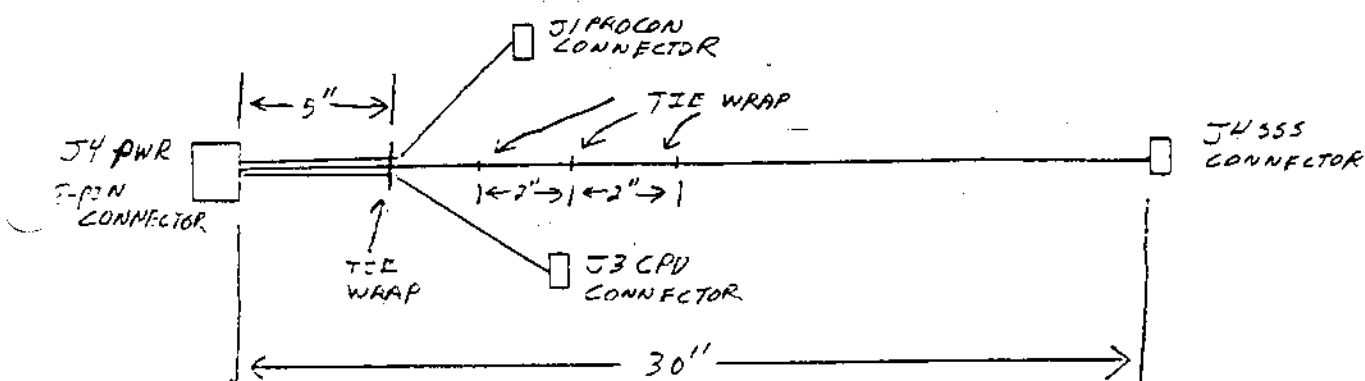 J1 PROCON
CONNECTOR
5"
TIE WRAP
J4 PWR
-PIN
CONNECTOR
J4 SSS
CONNECTOR
2"
2"
TIE
WRAP
J3 CPU
CONNECTOR
30"